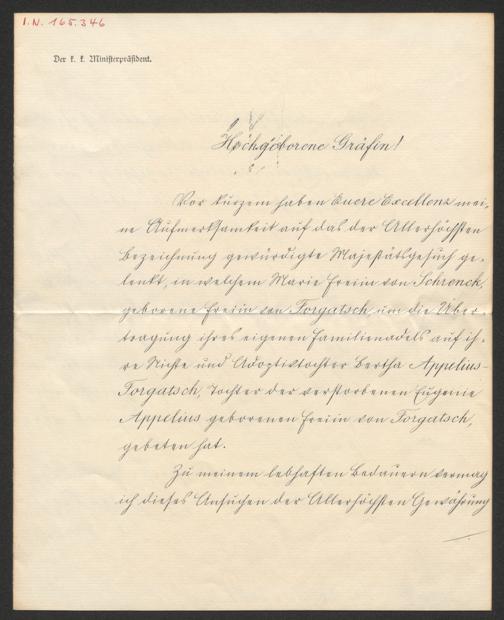 I.N. 165.346
Der k. k. Ministerpräsident.
Hochgeborene Gräfin!
Vor kurzem haben Euere Excellenz mei-
ne Aufmerksamkeit auf das der Allerhöchsten
Bezeichnung gewürdigte Majestätsgesuch ge-
lenkt, in welchem Marie Freiin von Schrenck,
geborene Freiin von Forgatsch um die Über-
tragung ihres eigenen Familienadels auf ih-
re Nichte und Adoptivtochter Bertha Appelius-
Forgatsch, Tochter der verstorbenen Eugenie
Appelius geborenen Freiin von Forgatsch,
gebeten hat.
Zu meinem lebhaften Bedauern vermag
ich dieses Ansuchen der Allerhöchsten Gewährung